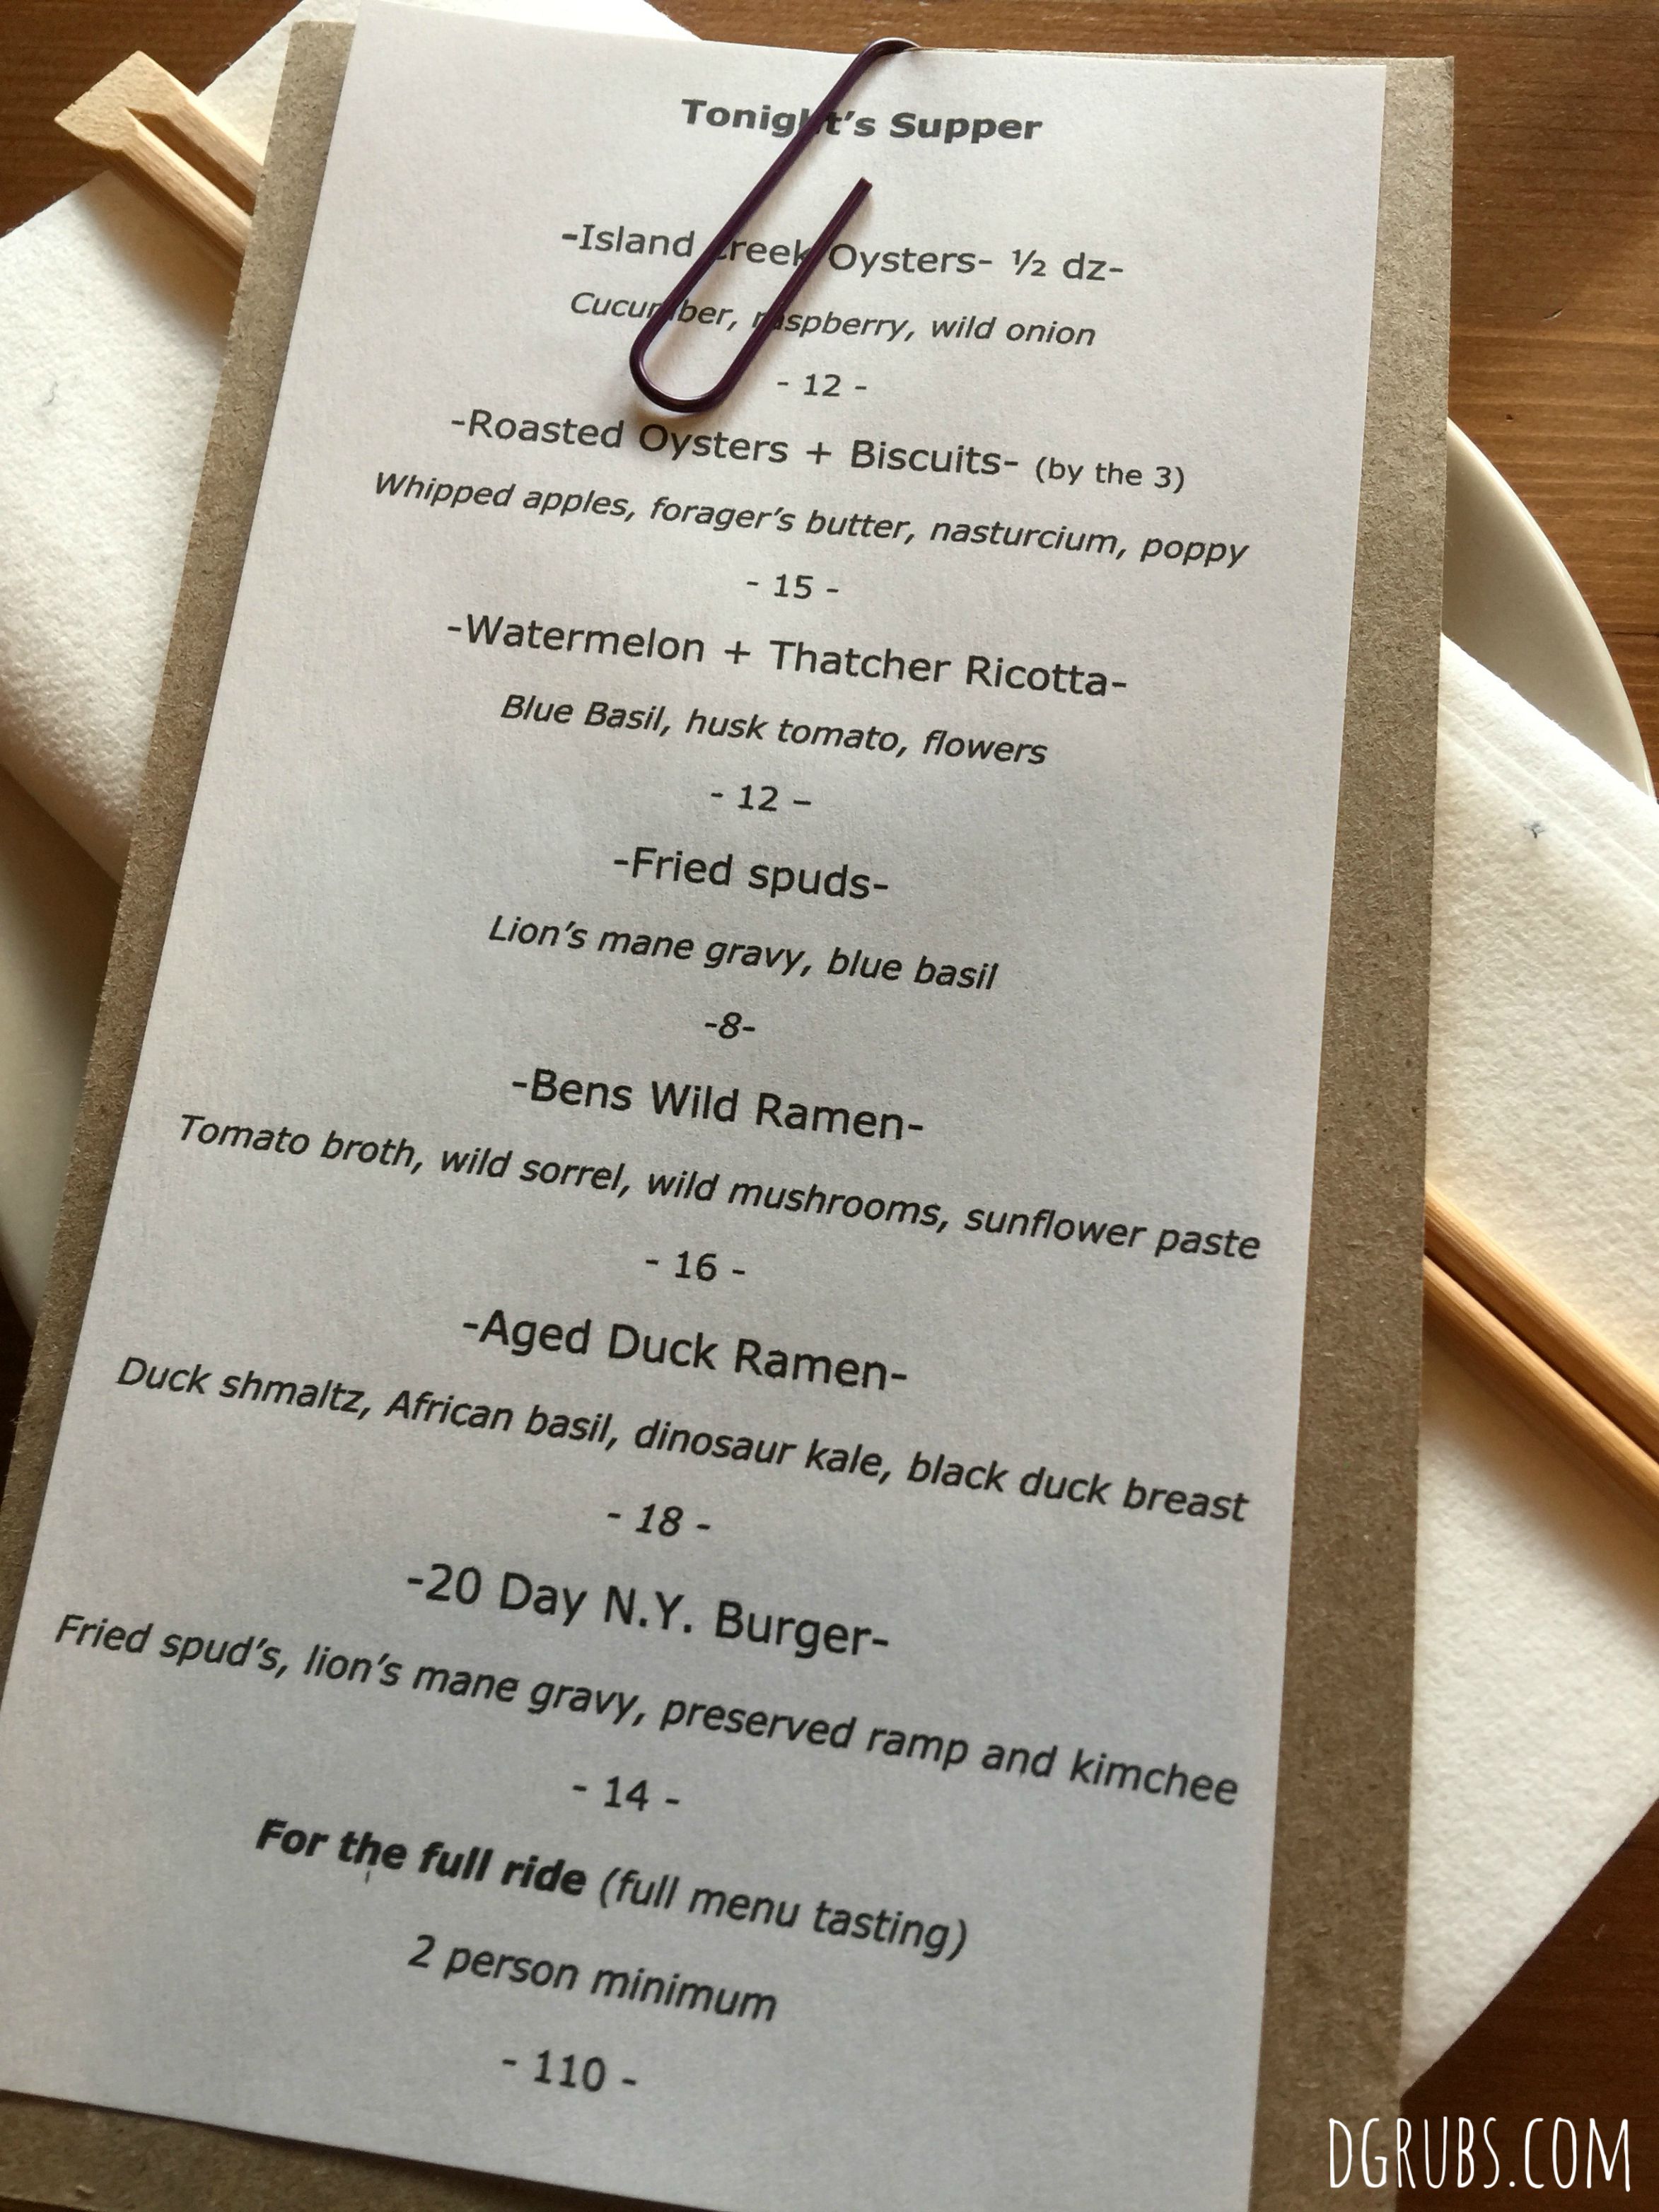 Tonight's Supper
-Island Creek Oysters- ½ dz-
Cucumber, raspberry, wild onion
- 12 -
-Roasted Oysters + Biscuits- (by the 3)
Whipped apples, forager's butter, nasturcium, poppy
- 15 -
-Watermelon + Thatcher Ricotta-
Blue Basil, husk tomato, flowers
- 12 –
-Fried spuds-
Lion's mane gravy, blue basil
-8-
-Bens Wild Ramen-
Tomato broth, wild sorrel, wild mushrooms, sunflower paste
- 16 -
-Aged Duck Ramen-
Duck shmaltz, African basil, dinosaur kale, black duck breast
- 18 -
-20 Day N.Y. Burger-
Fried spud's, lion's mane gravy, preserved ramp and kimchee
- 14 -
For the full ride (full menu tasting)
2 person minimum
- 110 -
DGRUBS.COM